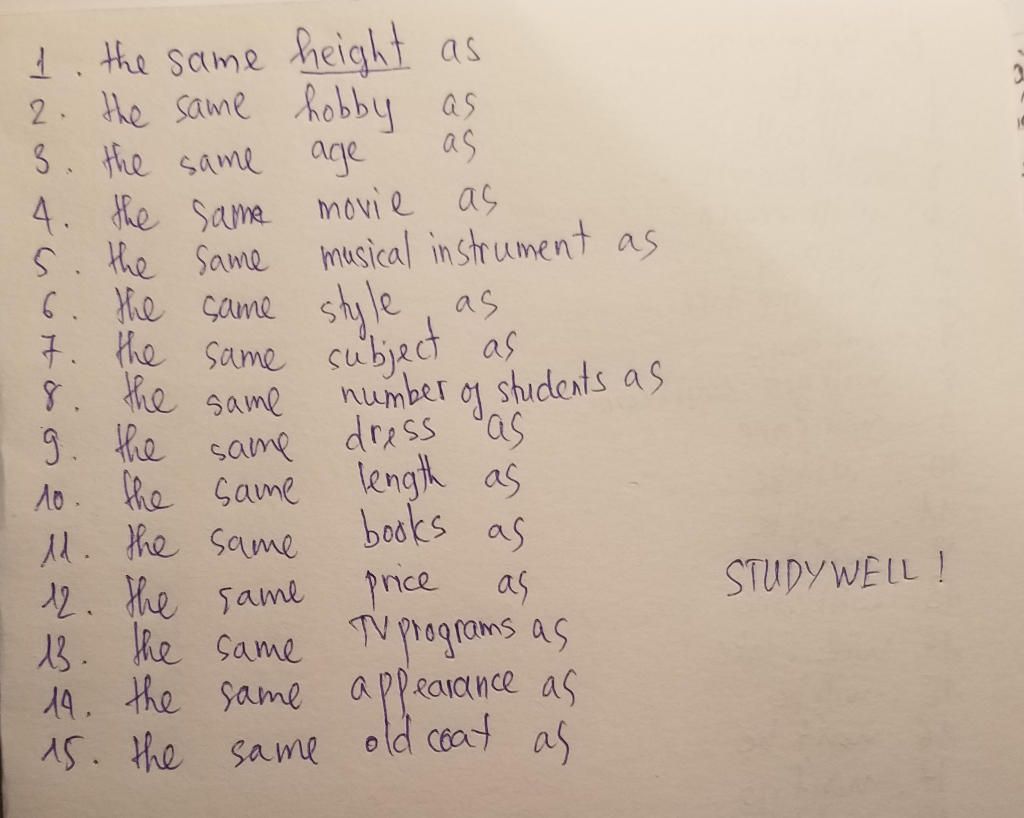 1. the same height as
2. the same hobby as
3. the same age as
4. the same movie as
5. the same musical instrument as
6. the same style as
7. the same subject as
8. the same number of students as
9. the same dress as
10. the same length as
11. the same books as
12. the same price as
13. the same TV programs as
14. the same appearance as
15. the same old coat as
STUDY WELL!